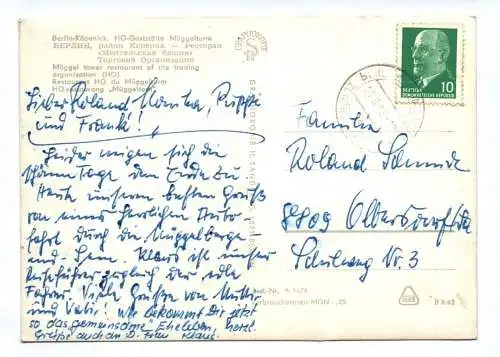 Berlin-Köpenick, HO-Gaststätte Müggelturm
БЕРЛИН, район Кёпеник — Ресторан
«Мюггельская башня»
Торговой Организации
Müggel tower restaurant of the trading
organisation (HO)
Restaurant HO du Müggelturm
"Müggelturm"
Lieber Roland, Puppi
und Frank!
Leider neigen sich die
schönen Tage dem Ende zu
Heute unseren besten Gruß
von einer herrlichen Auto-
fahrt durch die Müggelberge
und. Klaus ist unser
Reiseführer zugleich der edle
Fahrer. Viele Grüße von Mutti
und Vati! Wie bekommt Dir jetzt
so das gemeinsame Eheleben,
Grüße auch an D. Frau Klaus.
DEUTSCHE
DEMOKRATISCHE REPUBLIK
10
Familie
Roland Schmidt
8809 Olbersdorf
Schulweg Nr. 3
Best.-Nr. A 1678
Verbraucherpreis MDN -,25